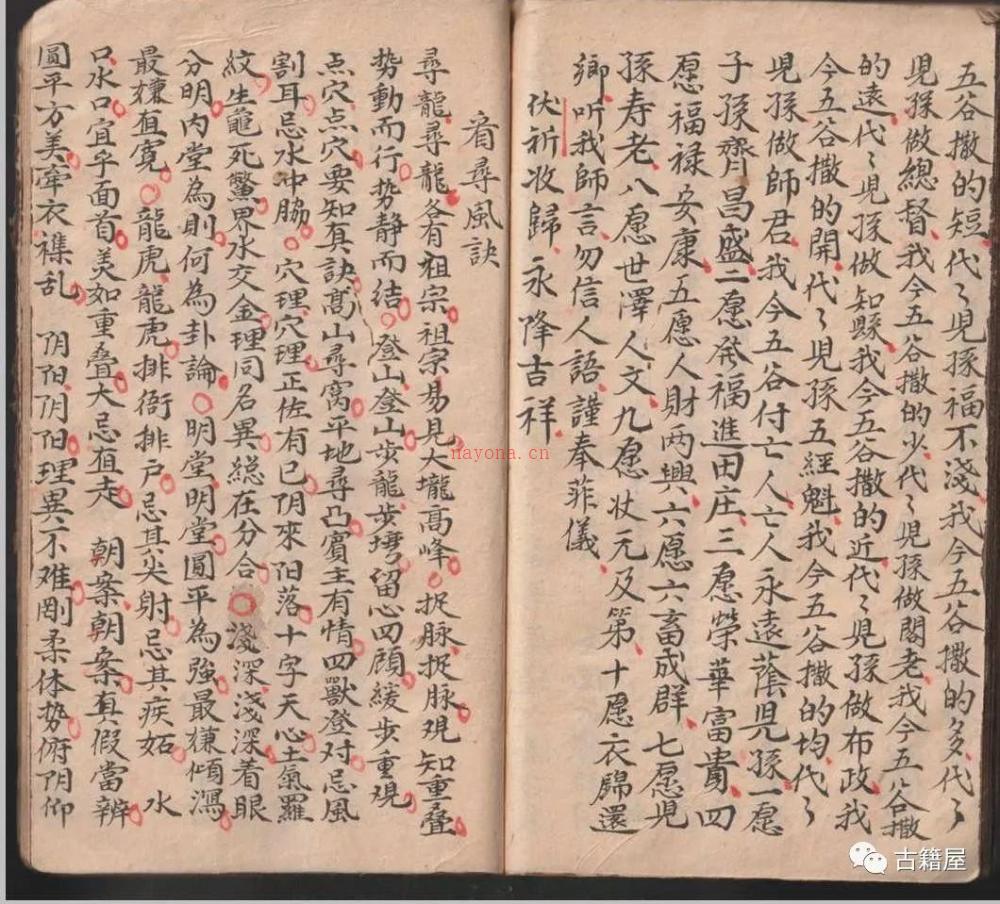 五谷撒的短代〻児孫福不淺我今五谷撒的多代〻
児孫做總督我今五谷撒的少代〻児孫做閣老我今五谷撒
的遠代〻児孫做知縣我今五谷撒的近代〻児孫做布政我
今五谷撒的開代〻児孫五經魁我今五谷撒的均代〻
児孫做師君我今五谷付亡人亡人永遠蔭児孫一愿
子孫齊昌盛二愿發福進田庄三愿榮華富貴四
愿福禄安康五愿人財両興六愿六畜成群七愿児
孫寿老八愿世澤人文九愿状元及第十愿衣歸還
鄉听我師言勿信人語謹奉菲儀
伏祈收歸永降吉祥
看尋風訣
尋龍尋龍各有祖宗祖宗易見大壠高峰捉脉捉脉观知重叠
势動而行势靜而結登山登山步龍步塆留心四顧緩步重观
点穴点穴要知真訣高山尋窩平地尋凸賓主有情四獸登对忌風
割耳忌水冲脇穴理穴理正佐有已阴來阳落十字天心土氣羅
紋生龜死鱉界水交金理同名異總在分合淺深淺深着眼
分明内堂為則何為卦論明堂明堂圓平為強最嫌傾瀉
最嫌直寬龍虎龍虎排衙排户忌其尖射忌其疾妬水
口水口宜乎面首美如重叠大忌直走朝案朝案真假當辨
圓平方美牽衣襍乱阴阳阴阳理異不难剛柔体势俯阴仰
nayona.cn
古籍屋